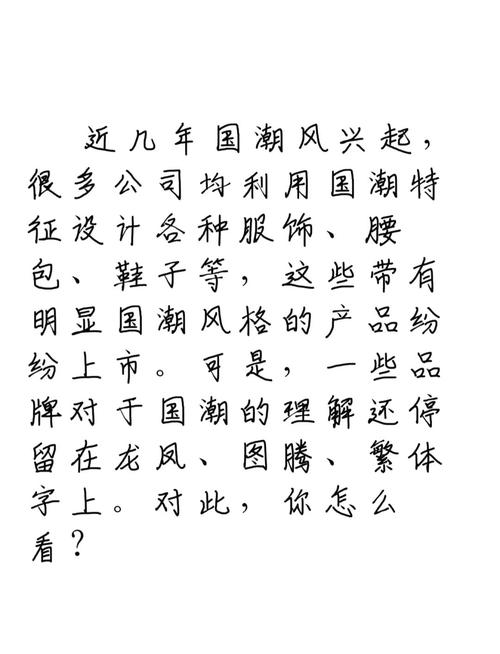 近几年国潮风兴起，
很多公司均利用国潮特
征设计各种服饰、腰
包、鞋子等，这些带有
明显国潮风格的产品纷
纷上市。可是，一些品
牌对于国潮的理解还停
留在龙凤、图腾、繁体
字上。对此，你怎么
看？